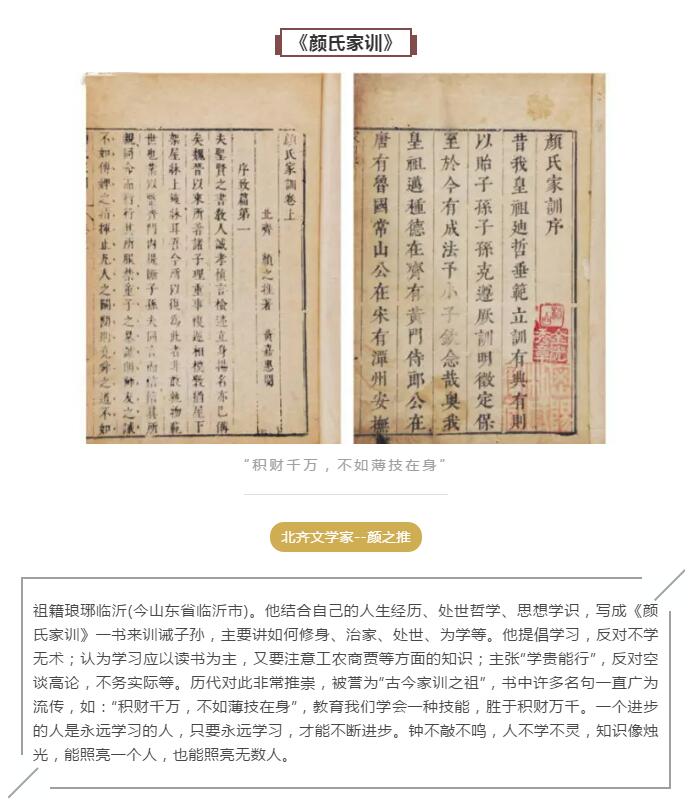 《颜氏家训》
顔氏家訓序
昔我皇祖廸哲垂範立訓有典有則
以貽子孫子孫克遵厥訓明徵定保
至於今有成法予小子欽念哉奥我
皇祖邁種德在齊有黃門侍郎公在
唐有魯國常山公在宋有潭州安撫
顔氏家訓卷上
北齊 顔之推著 黃嘉惠閱
序致篇第一
夫聖賢之書教人誠孝慎言檢迹立身揚名亦已備
矣魏晉以來所著諸子理重事複遞相模斆猶屋下
架屋牀上施牀耳吾今所以復為此者非敢軌物範
世也業以整齊門内提撕子孫夫同言而信信其所
親同令而行行其所服禁童子之暴謔則師友之誡
不如傅婢之指揮止凡人之鬭鬩則堯舜之道不如
“积财千万，不如薄技在身”
北齐文学家--颜之推
祖籍琅琊临沂(今山东省临沂市)。他结合自己的人生经历、处世哲学、思想学识，写成《颜
氏家训》一书来训诫子孙，主要讲如何修身、治家、处世、为学等。他提倡学习，反对不学
无术；认为学习应以读书为主，又要注意工农商贾等方面的知识；主张“学贵能行”，反对空
谈高论，不务实际等。历代对此非常推崇，被誉为“古今家训之祖”，书中许多名句一直广为
流传，如：“积财千万，不如薄技在身”，教育我们学会一种技能，胜于积财万千。一个进步
的人是永远学习的人，只要永远学习，才能不断进步。钟不敲不鸣，人不学不灵，知识像烛
光，能照亮一个人，也能照亮无数人。